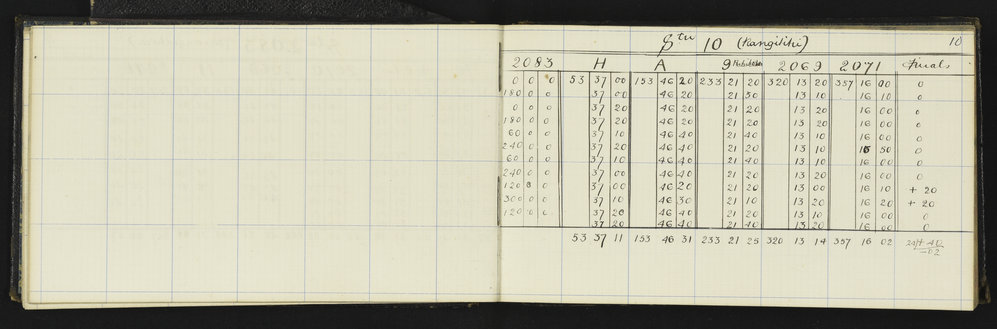 Stn 10 (Rangitihi) 10
2083 H A 9 2069 2071 Finals
0 0 0 53 37 00 153 46 20 233 21 20 320 13 20 357 16 00 0
180 0 0 37 00 46 20 21 50 13 10 16 10 0
0 0 0 37 20 46 20 21 20 13 20 16 00 0
180 0 0 37 20 46 20 21 20 13 20 16 00 0
60 0 0 37 10 46 40 21 40 13 10 16 00 0
240 0 0 37 20 46 40 21 20 13 10 15 50 0
60 0 0 37 10 46 40 21 40 13 10 16 00 0
240 0 0 37 00 46 40 21 20 13 20 16 00 0
120 0 0 37 00 46 20 21 20 13 00 16 10 + 20
300 0 0 37 10 46 30 21 10 13 20 16 20 + 20
120 0 0 37 20 46 40 21 20 13 10 16 00 0
37 20 46 40 21 40 13 20 16 00 0
53 37 11 153 46 31 233 21 25 320 13 14 357 16 02 + 40
02